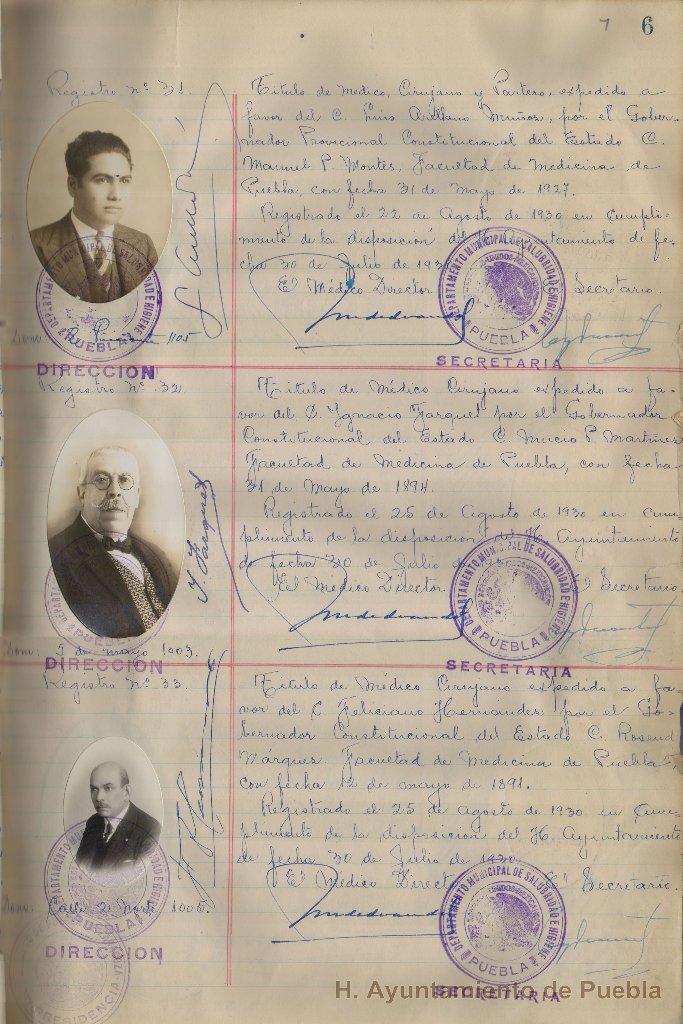 7 6
Registro nº 31.
Titulo de Medico, Cirujano y Partero, expedido a
favor del C. Luis Arellano Muñós, por el Gober-
nador Provicional Constitucional del Estado C.
Manuel P. Montes, Facultad de Medicina de
Puebla, con fecha 31 de Mayo de 1927.
Registrado el 22 de Agosto de 1930 en cumpli-
miento de la disposicion del H. Ayuntamiento de fe-
cha 30 de Julio de 193
El Médico Director Secretario.
DEPARTAMENTO MUNICIPAL DE SALUBRIDAD E HIGIENE
PUEBLA
Dom: 1105
DIRECCION
DEPARTAMENTO MUNICIPAL DE SALUBRIDAD E HIGIENE
ESTADOS UNIDOS MEXICANOS
PUEBLA
SECRETARIA
Registro nº 32
Titulo de Médico Cirujano expedido a fa-
vor del D. Ygnacio Jarquel por el Gobernador
Constitucional del Estado C. Mucio P. Martínes
Facultad de Medicina de Puebla, con fecha
31 de Mayo de 1894.
Registrado el 25 de Agosto de 1930 en cum-
plimento de la disposicion del H. Ayuntamiento
de fecha 30 de Julio de
El Médico Director El Secretario.
DEPARTAMENTO
PUEBLA
Dom: 5 de mayo 1003.
DIRECCION
DEPARTAMENTO MUNICIPAL DE SALUBRIDAD E HIGIENE
ESTADOS UNIDOS MEXICANOS
PUEBLA
SECRETARIA
Registro nº 33.
Titulo de Médico Cirujano expedido a fa-
vor del C. Feliciano Hernández por el Go-
bernador Constitucional del Estado C. Rosend
Márques. Facultad de Medicina de Puebla
con fecha 12 de mayo de 1891.
Registrado el 25 de agosto de 1930 en cum-
plimento de la disposicion del H. Ayuntamiento
de fecha 30 de Julio de 1930.
El Médico Direct El Secretario.
DEPARTAMENTO MUNICIPAL DE SALUBRIDAD E HIGIENE
PUEBLA
Dom: Calle 2 Norte 1005.
DIRECCION
PRESIDENCIA
DEPARTAMENTO MUNICIPAL DE SALUBRIDAD E HIGIENE
ESTADOS UNIDOS MEXICANOS
PUEBLA
SECRETARIA
H. Ayuntamiento de Puebla